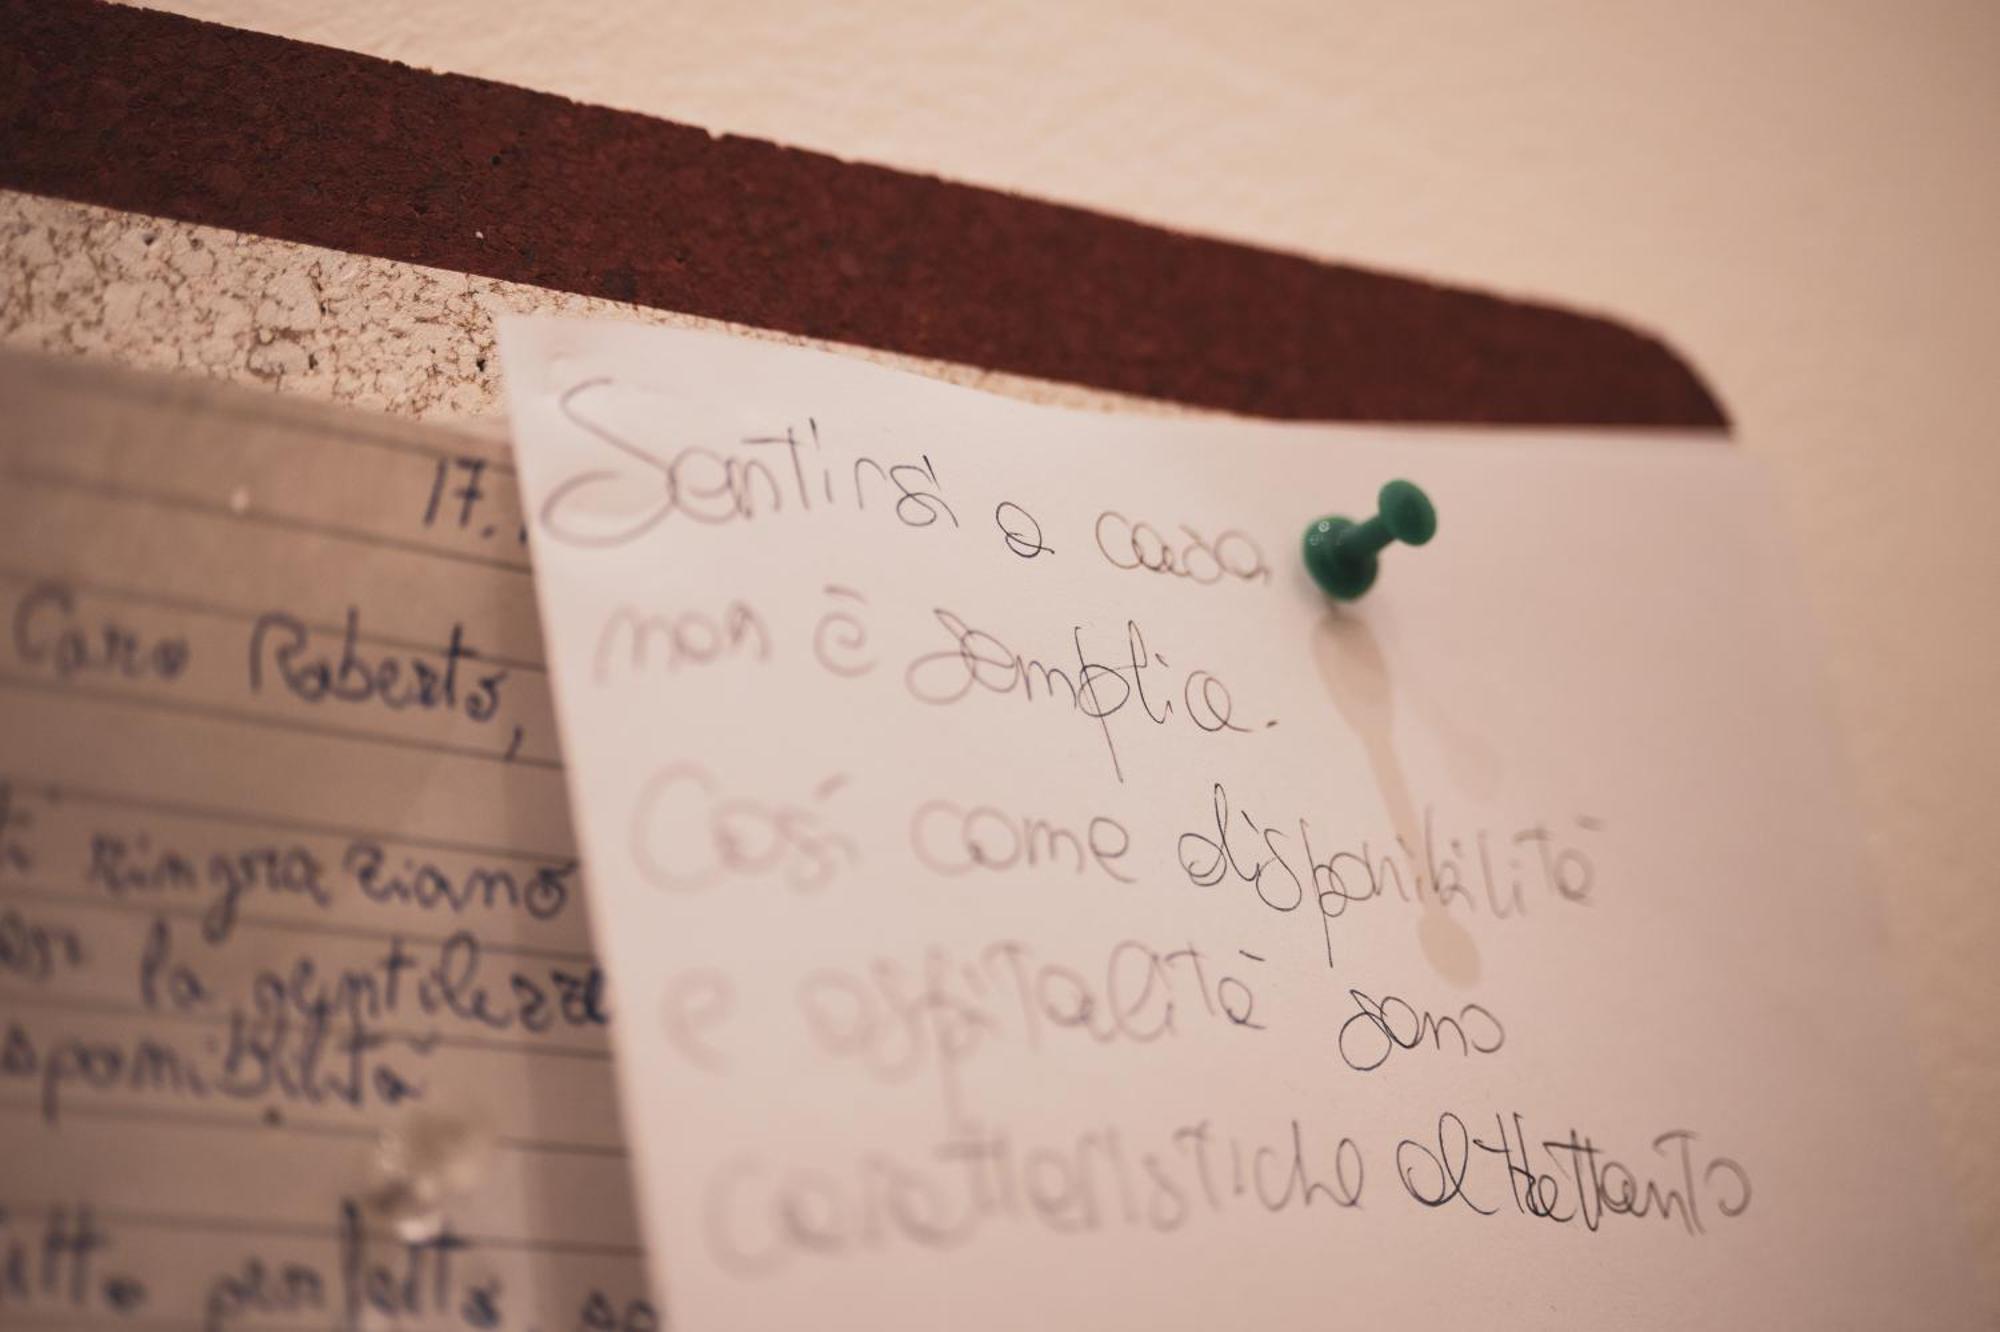 17.
Caro Roberto,
ti ringraziano
per la gentilezza
sponibilità
tutto perfetto
Sentirsi a casa
non è semplice.
Così come disponibilità
e ospitalità sono
caratteristiche altrettanto